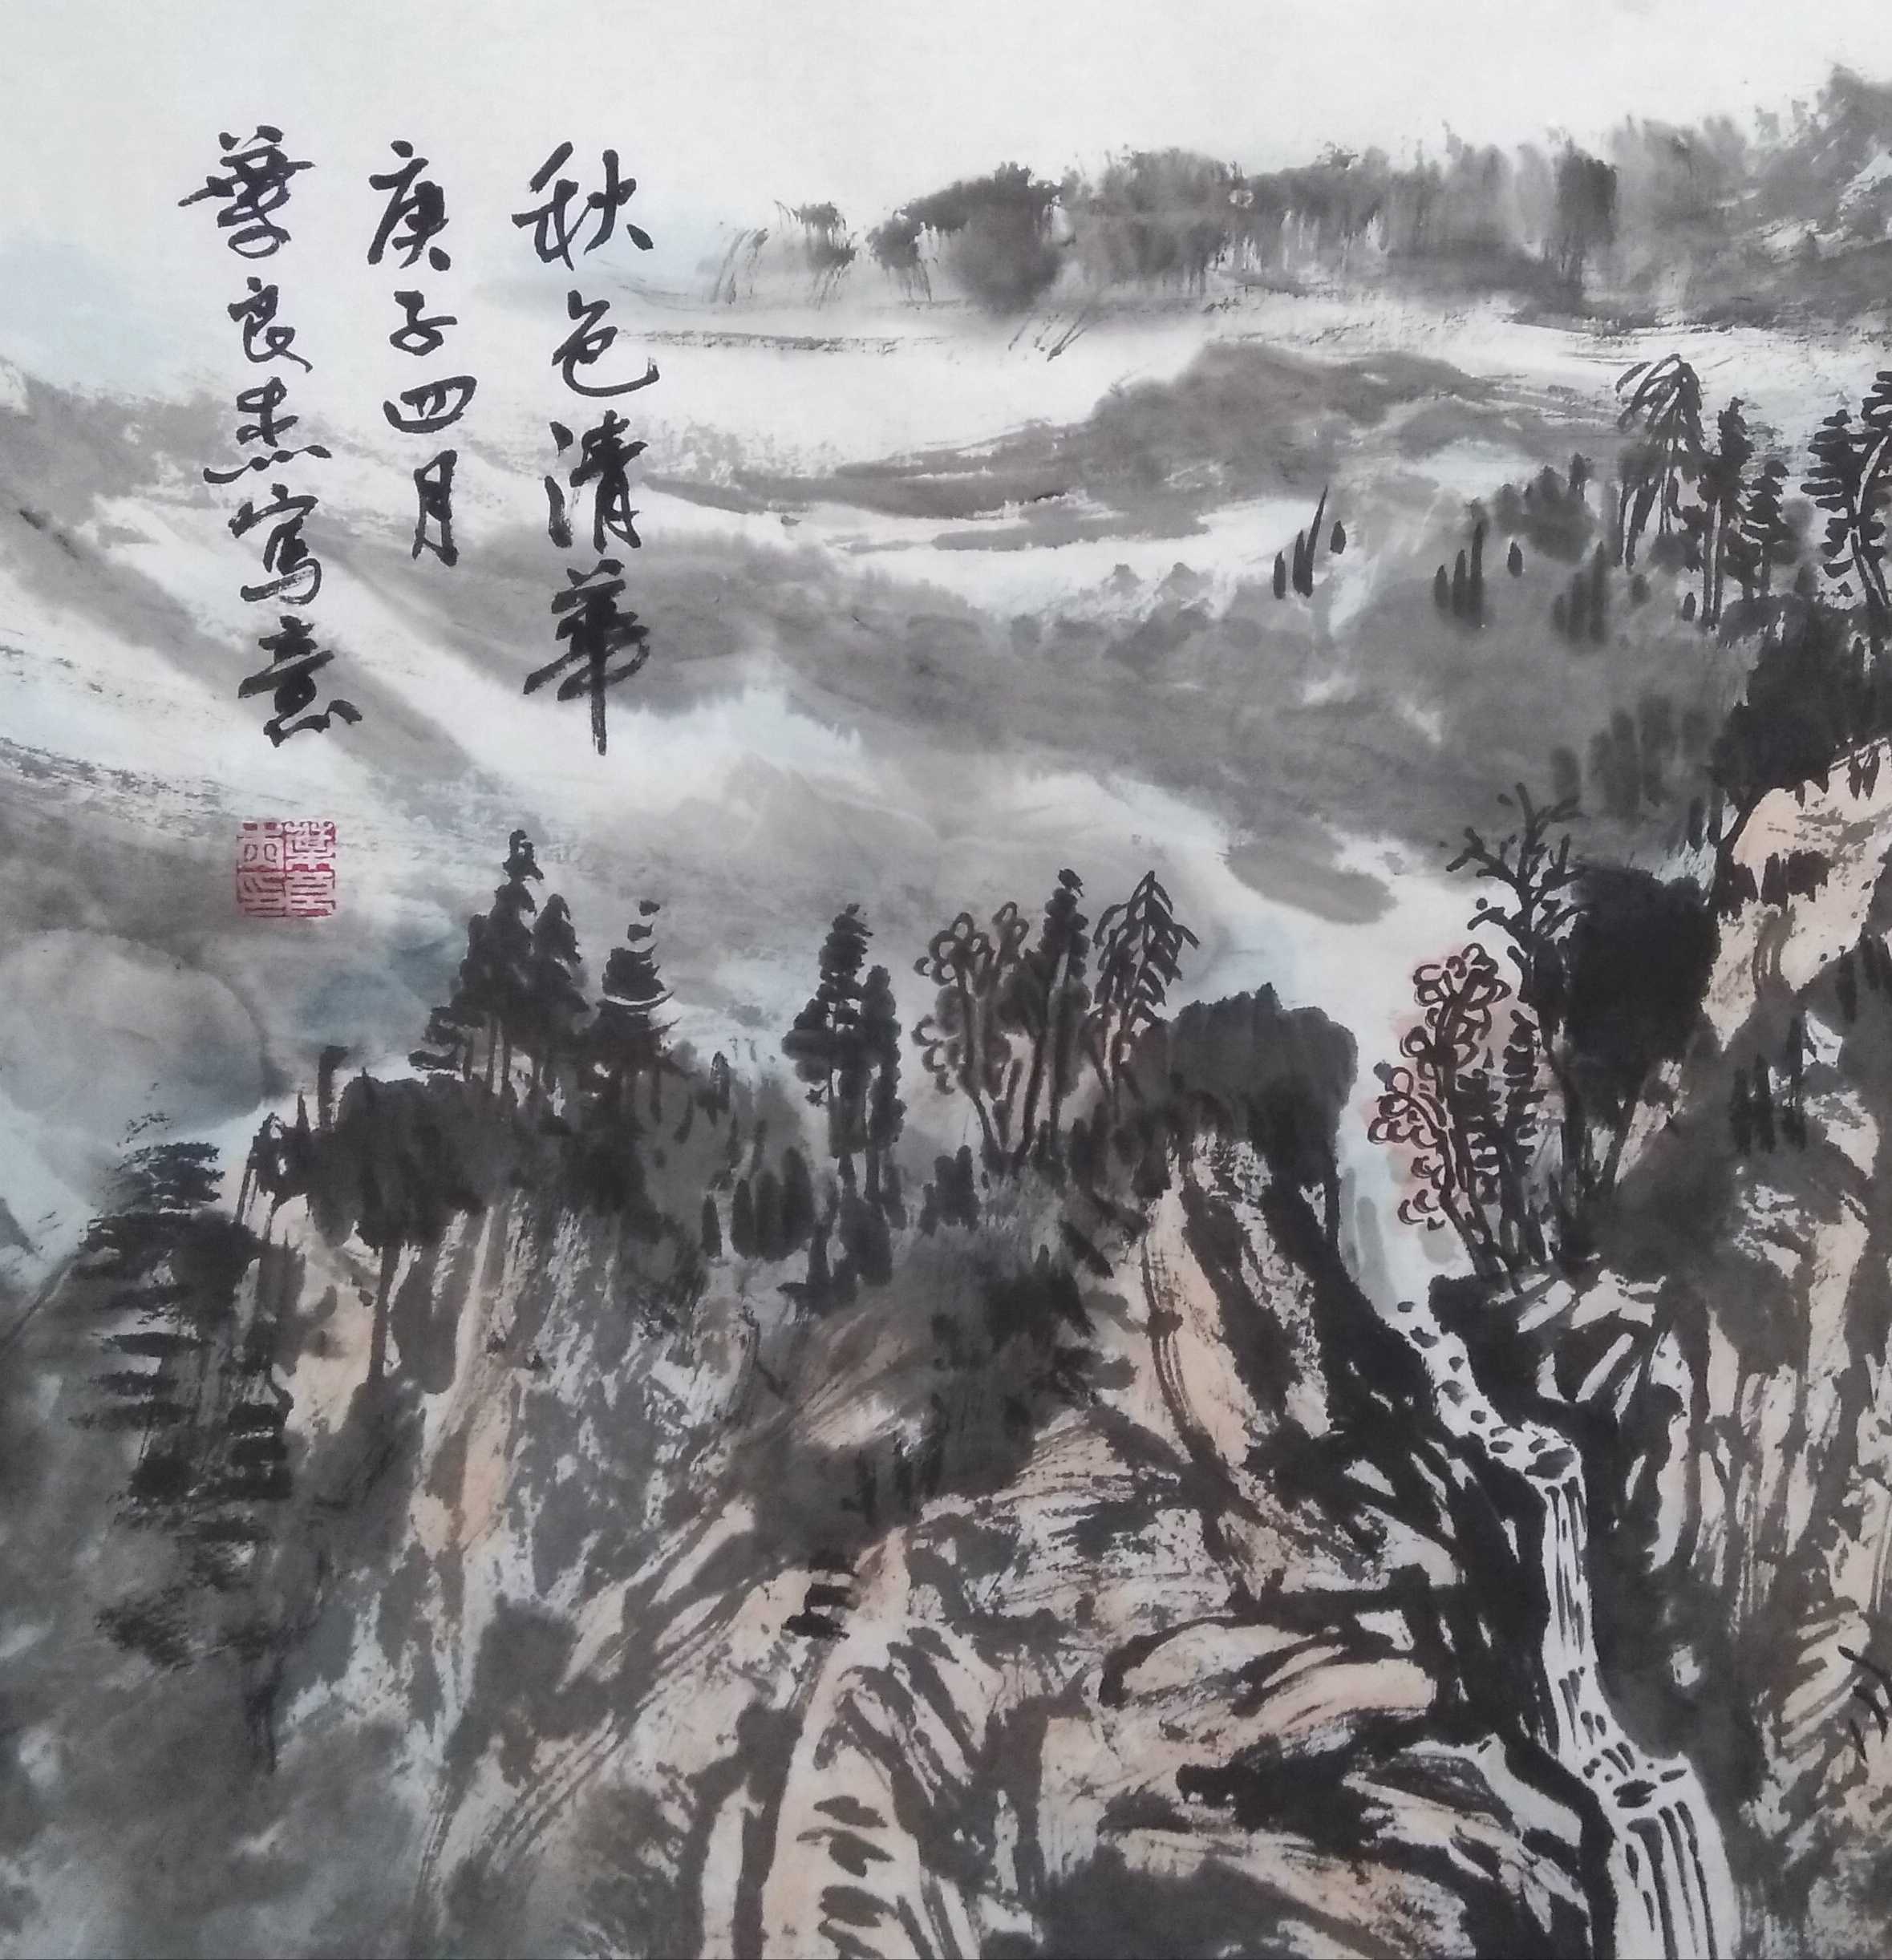 秋色清華
庚子四月
葉良杰寫意